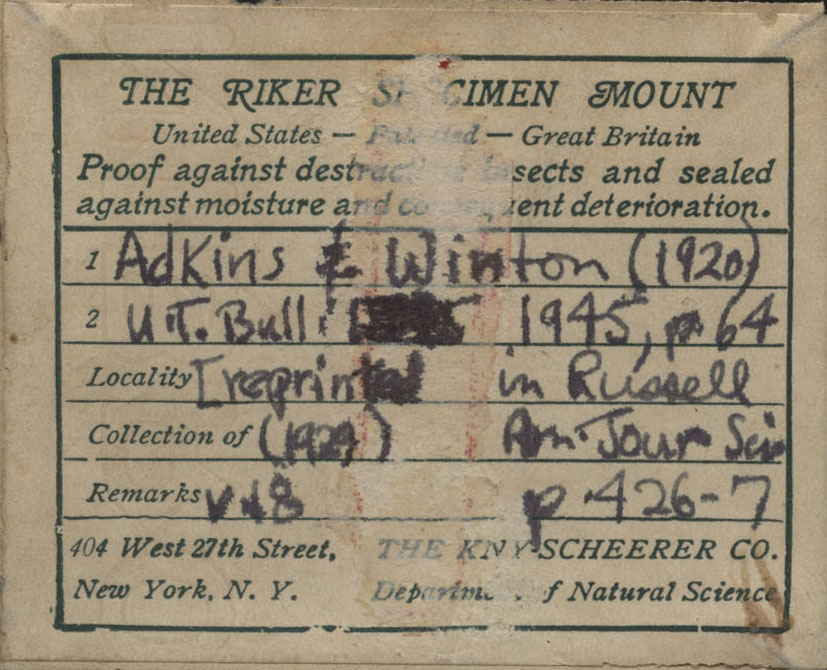 THE RIKER SPECIMEN MOUNT
United States — Patented — Great Britain
Proof against destructive insects and sealed
against moisture and consequent deterioration.
1 Adkins & Winton (1920)
2 U.T. Bull. 1945, p 64
Locality [reprinted in Russell
Collection of (1929) Am. Jour Sci
Remarks v. 18 p. 426-7
404 West 27th Street, THE KNY-SCHEERER CO.
New York, N. Y. Department of Natural Science